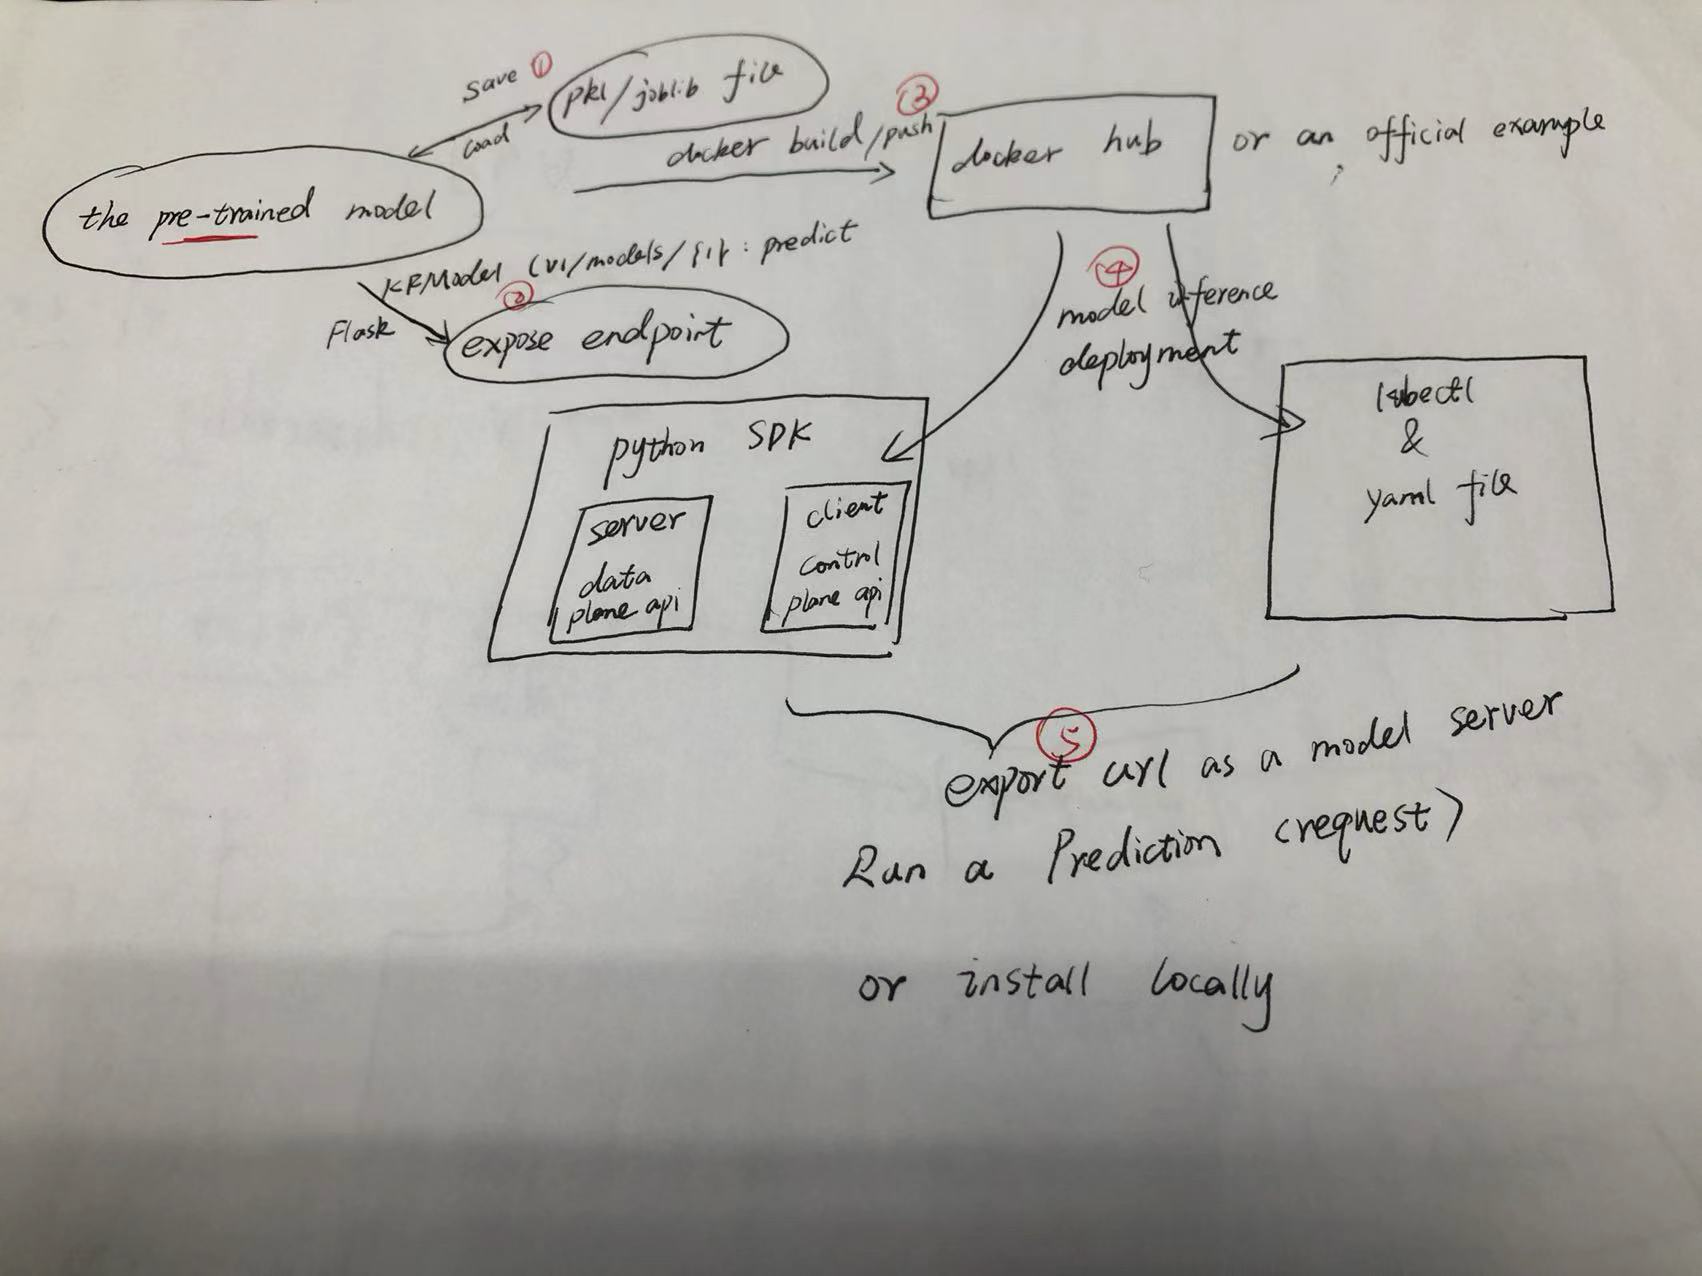 save ①
load
pkl/joblib file
docker build/push ③
docker hub
or an official example
the pre-trained model
KFModel (v1/models/{}: predict
②
Flask
expose endpoint
④
model inference
deployment
python SDK
server
data
plane api
client
control
plane api
kubectl
&
yaml file
⑤
export url as a model server
Run a Prediction (request)
or install locally